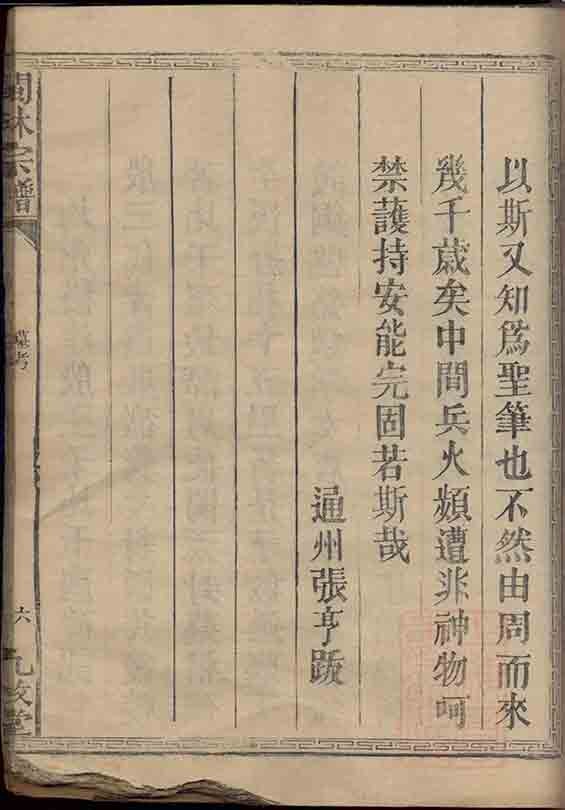 以斯又知爲聖筆也不然由周而來
幾千歲矣中間兵火頻遭非神物呵
禁護持安能完固若斯哉
通州張亨跋
閩林宗譜
墓考
六
九牧堂